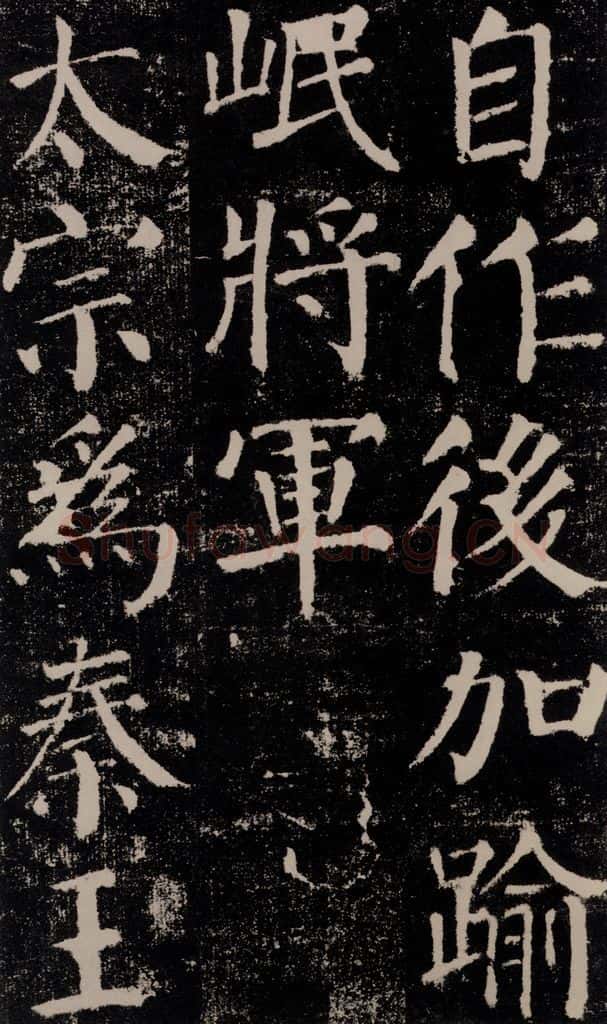 自作後加踰
岷將軍
太宗爲秦王
Shufawang.CN